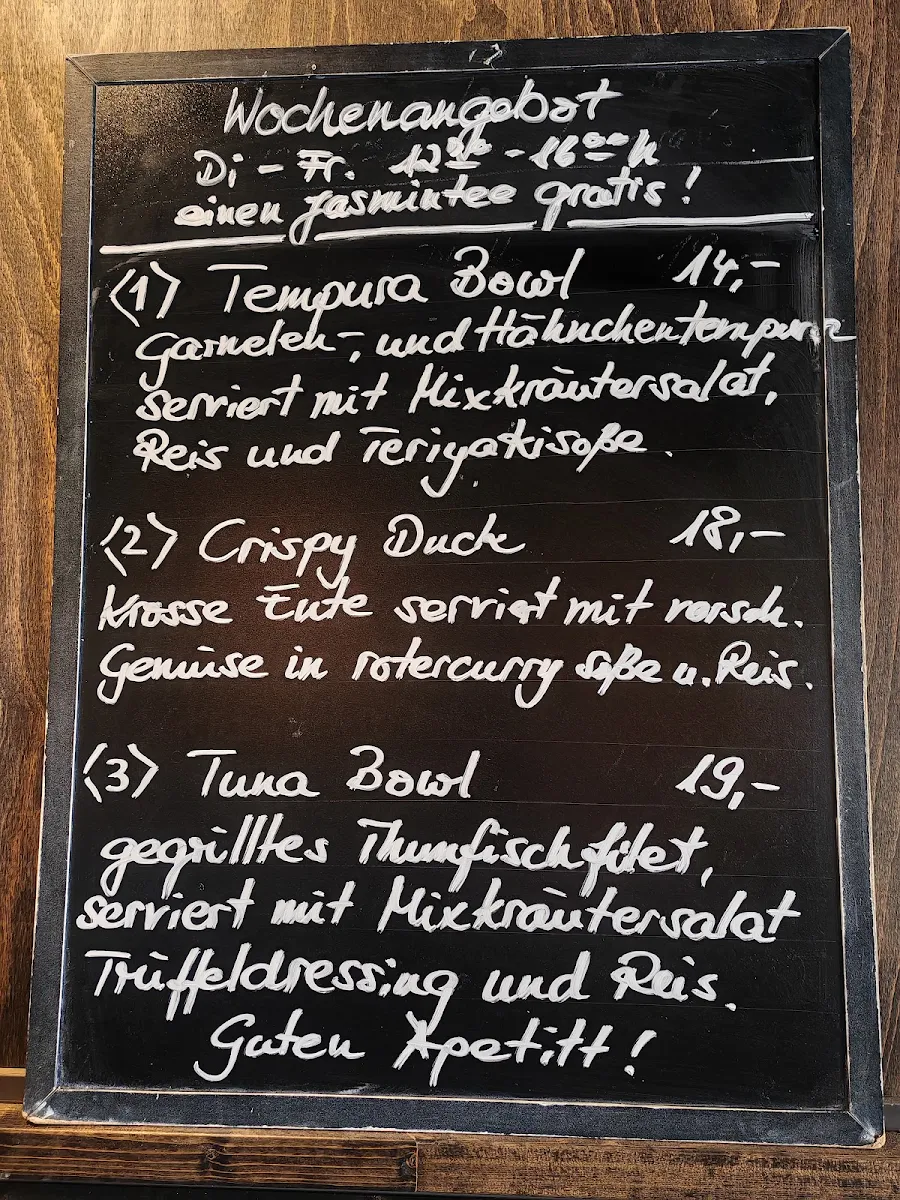 Wochenangebot
Di - Fr. 12⁰⁰ - 16⁰⁰ h
einen Jasmintee gratis!
<1> Tempura Bowl 14,-
Garnelen-, und Hähnchentempura
serviert mit Mixkräutersalat,
Reis und Teriyakisoße.
<2> Crispy Duck 18,-
krosse Ente serviert mit versch.
Gemüse in rotercurry soße u. Reis.
<3> Tuna Bowl 19,-
gegrilltes Thunfischfilet,
serviert mit Mixkräutersalat
Trüffeldressing und Reis.
Guten Apetitt!